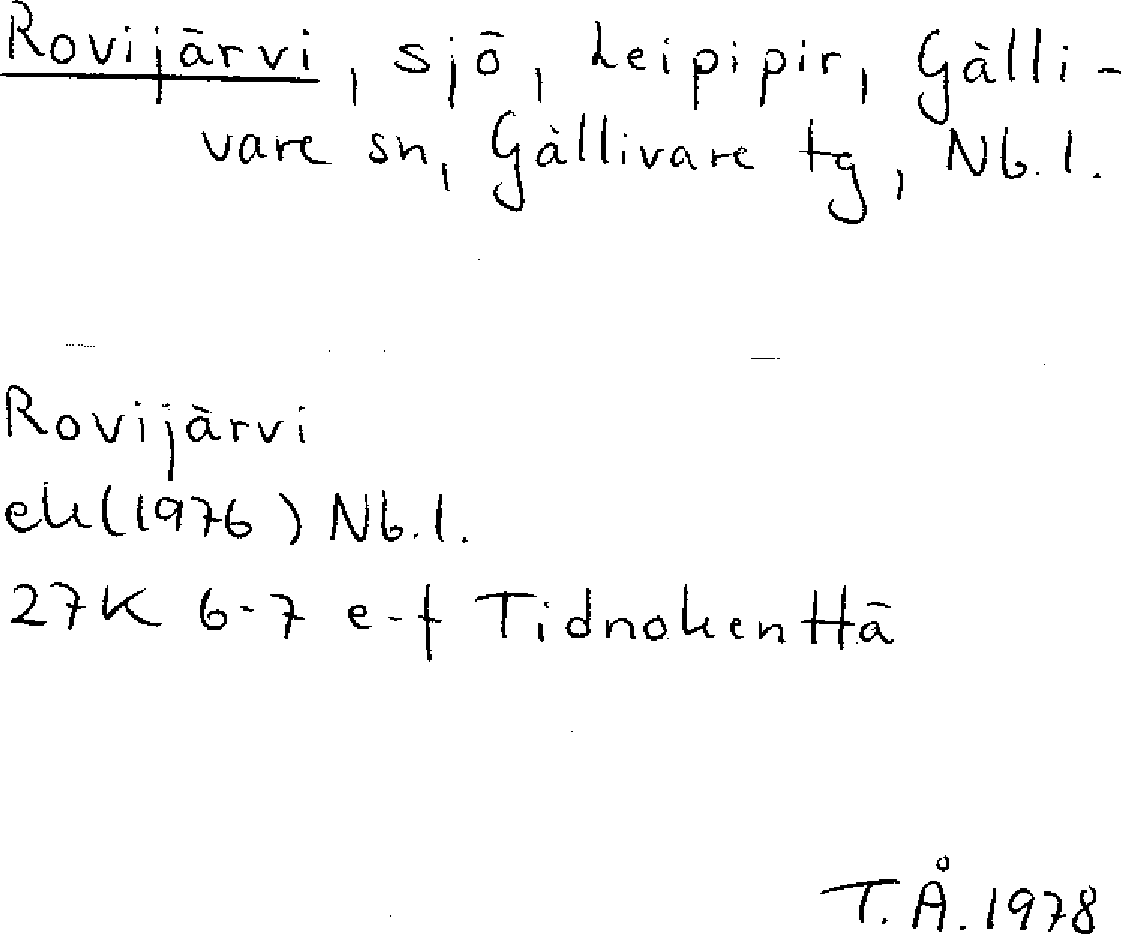 Rovijärvi, sjö, Leipipir, Gälli-
vare sn, Gällivare tg, Nb. l.
Rovijärvi
ek (1976) Nb. l.
27K 6-7 e-f Tidnokenttä
T.Å. 1978